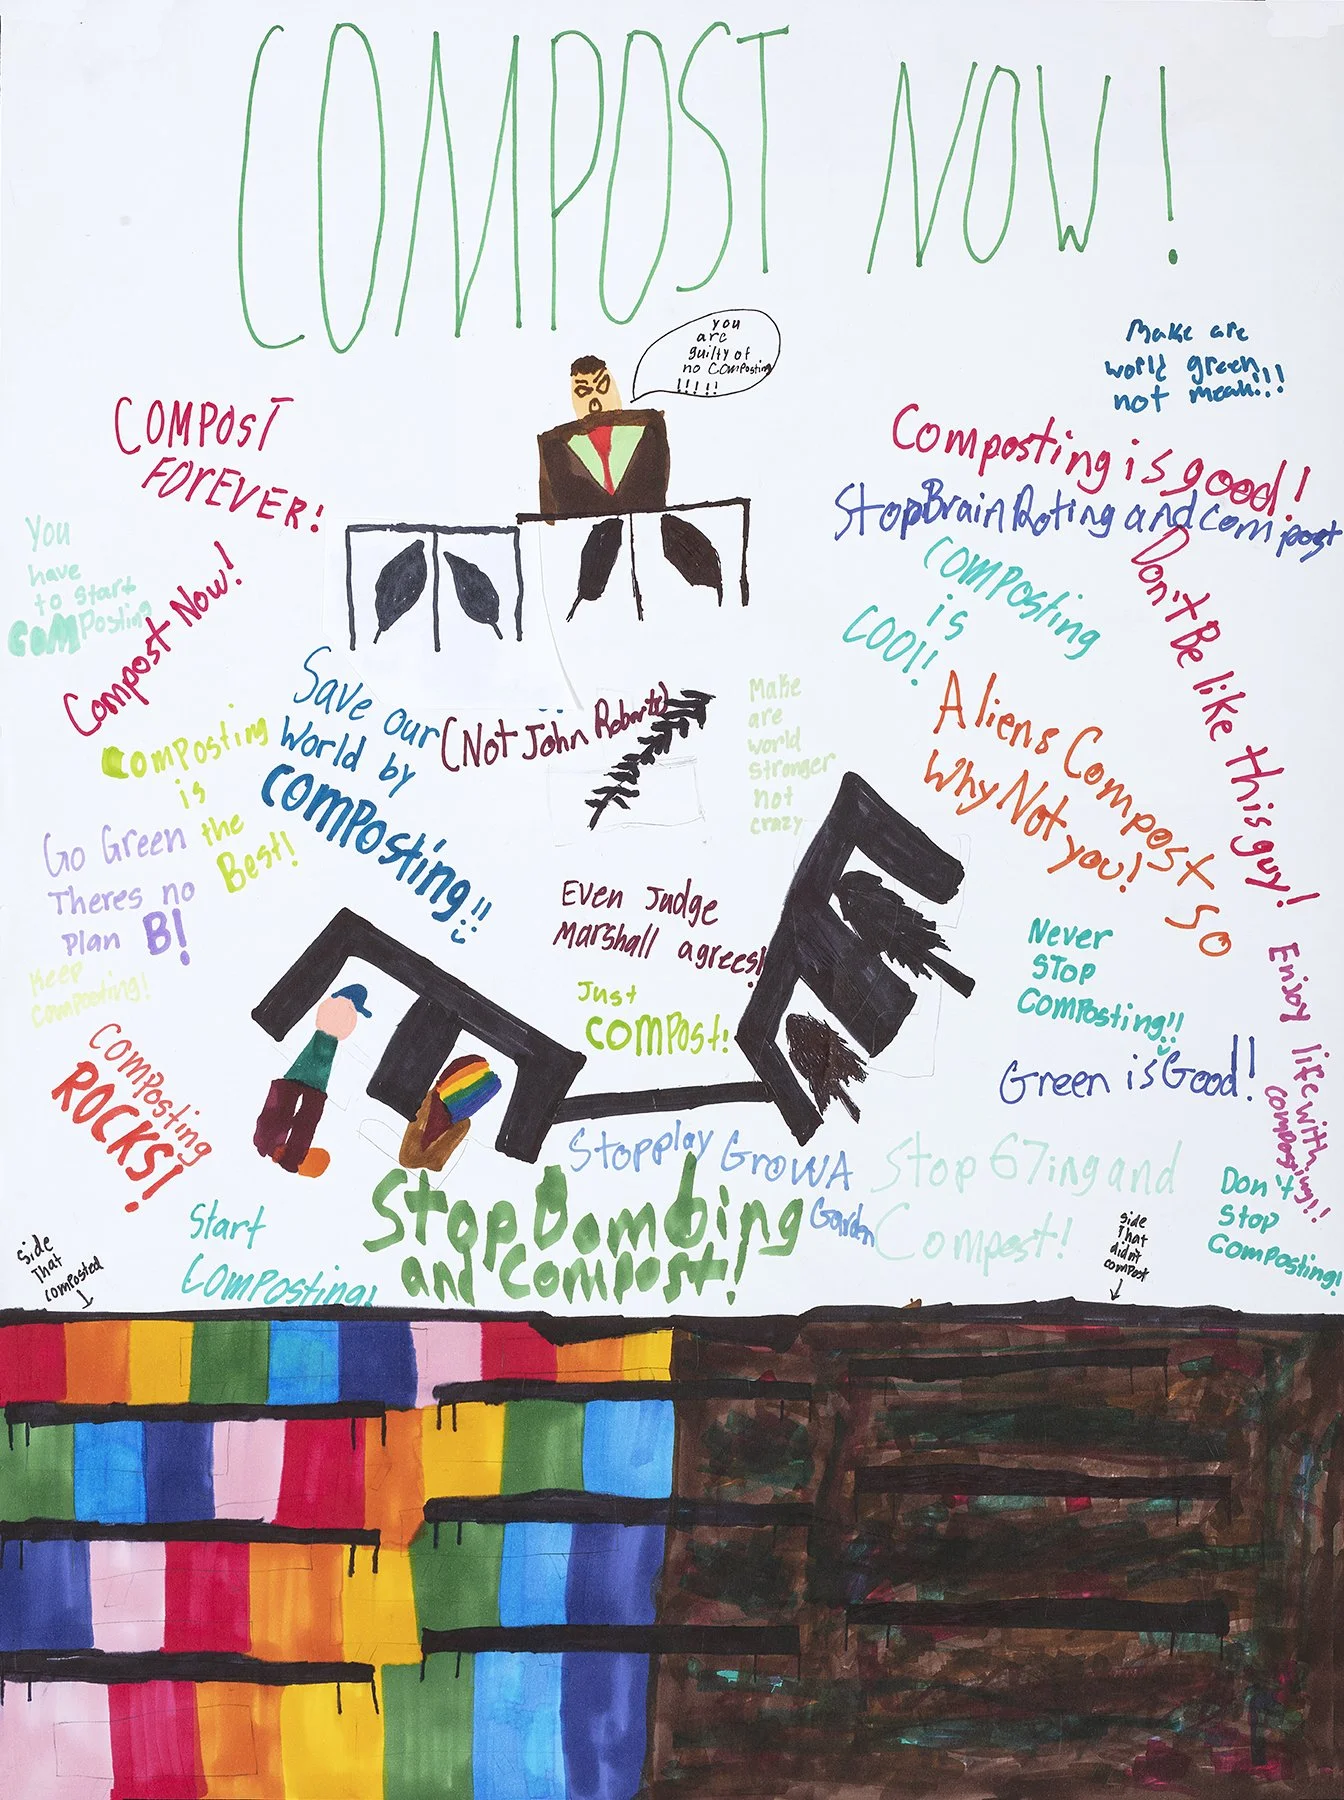 COMPOST NOW!
you
are
guilty of
no composting
!!!!!
Make are
world green
not meah!!!
COMPOST
FOREVER!
Composting is good!
Stop Brain Roting and compost
You
have
to start
COMPosting
Compost Now!
COMPosting
is
COOl!
Don't Be like this guy!
Save our
World by
COMPosting!!
(Not John Roberts)
Make
are
world
stronger
not
crazy
Aliens Compost so
Why Not you!
COMPosting
is
the
Best!
Go Green
Theres no
plan B!
Even Judge
Marshall agrees!
Just
COMPOSt!
Never
STOP
COMPosting!!
Enjoy life with
composting!!
Keep
composting!
COMPosting
ROCKS!
Green is Good!
Stop play GroWA
Garden
Stop 67ing and
Compost!
Don't
Stop
COMPosting!
Start
COMPosting!
Stop Bombing
and Compost!
side
That
composted
side
That
didn't
compost